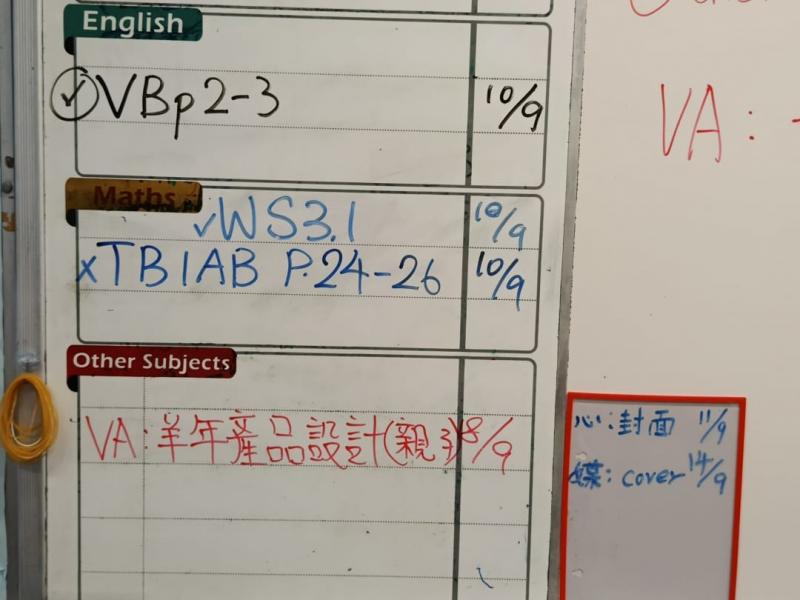 English
✓VBp2-3 10/9
Maths
✓WS3.1 10/9
×TB1AB P.24-26 10/9
Other Subjects
VA:羊年產品設計(親子) 8/9
VA:
心:封面 11/9
媒:cover 14/9